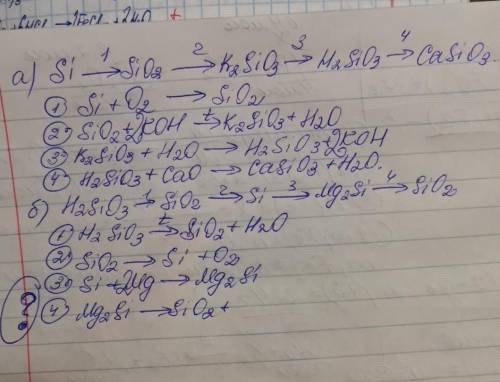 а) Si 1→ SiO2 2→ K2SiO3 3→ H2SiO3 4→ CaSiO3.
① Si + O2 → SiO2
② SiO2 + 2KOH t→ K2SiO3 + H2O
③ K2SiO3 + H2O → H2SiO3 + 2KOH
④ H2SiO3 + CaO → CaSiO3 + H2O.
б) H2SiO3 1→ SiO2 2→ Si 3→ Mg2Si 4→ SiO2
① H2SiO3 t→ SiO2 + H2O
② SiO2 → Si + O2
③ Si + 2Mg → Mg2Si
? ④ Mg2Si → SiO2 +